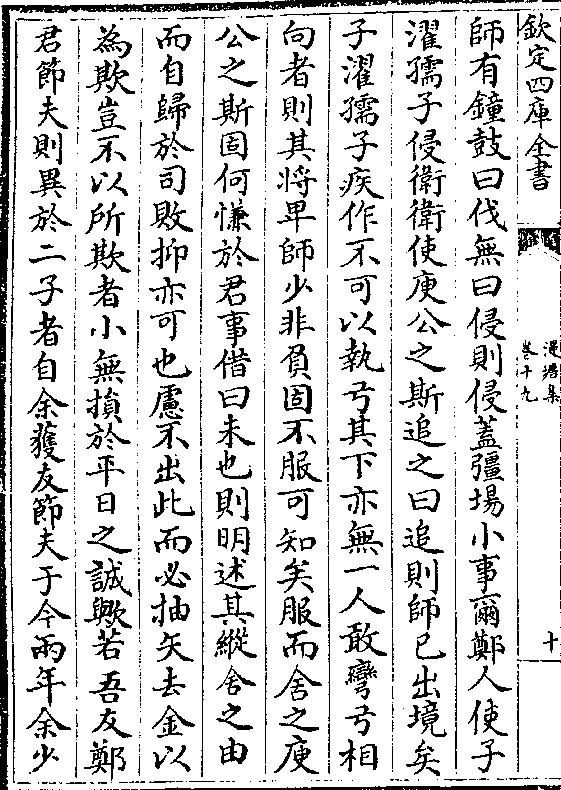 欽定四庫全書
漫塘集
卷十九
十
師有鐘鼓曰伐無曰侵則侵蓋彊場小事爾鄭人使子
濯孺子侵衛衛使庾公之斯追之曰追則師已出境矣
子濯孺子疾作不可以執弓其下亦無一人敢彎弓相
向者則其將卑師少非負固不服可知矣服而舍之庾
公之斯固何慊於君事借曰未也則明述其縱舍之由
而自歸於司敗抑亦可也慮不出此而必抽矢去金以
為欺豈不以所欺者小無損於平日之誠歟若吾友鄭
君節夫則異於二子者自余獲友節夫于今兩年余少